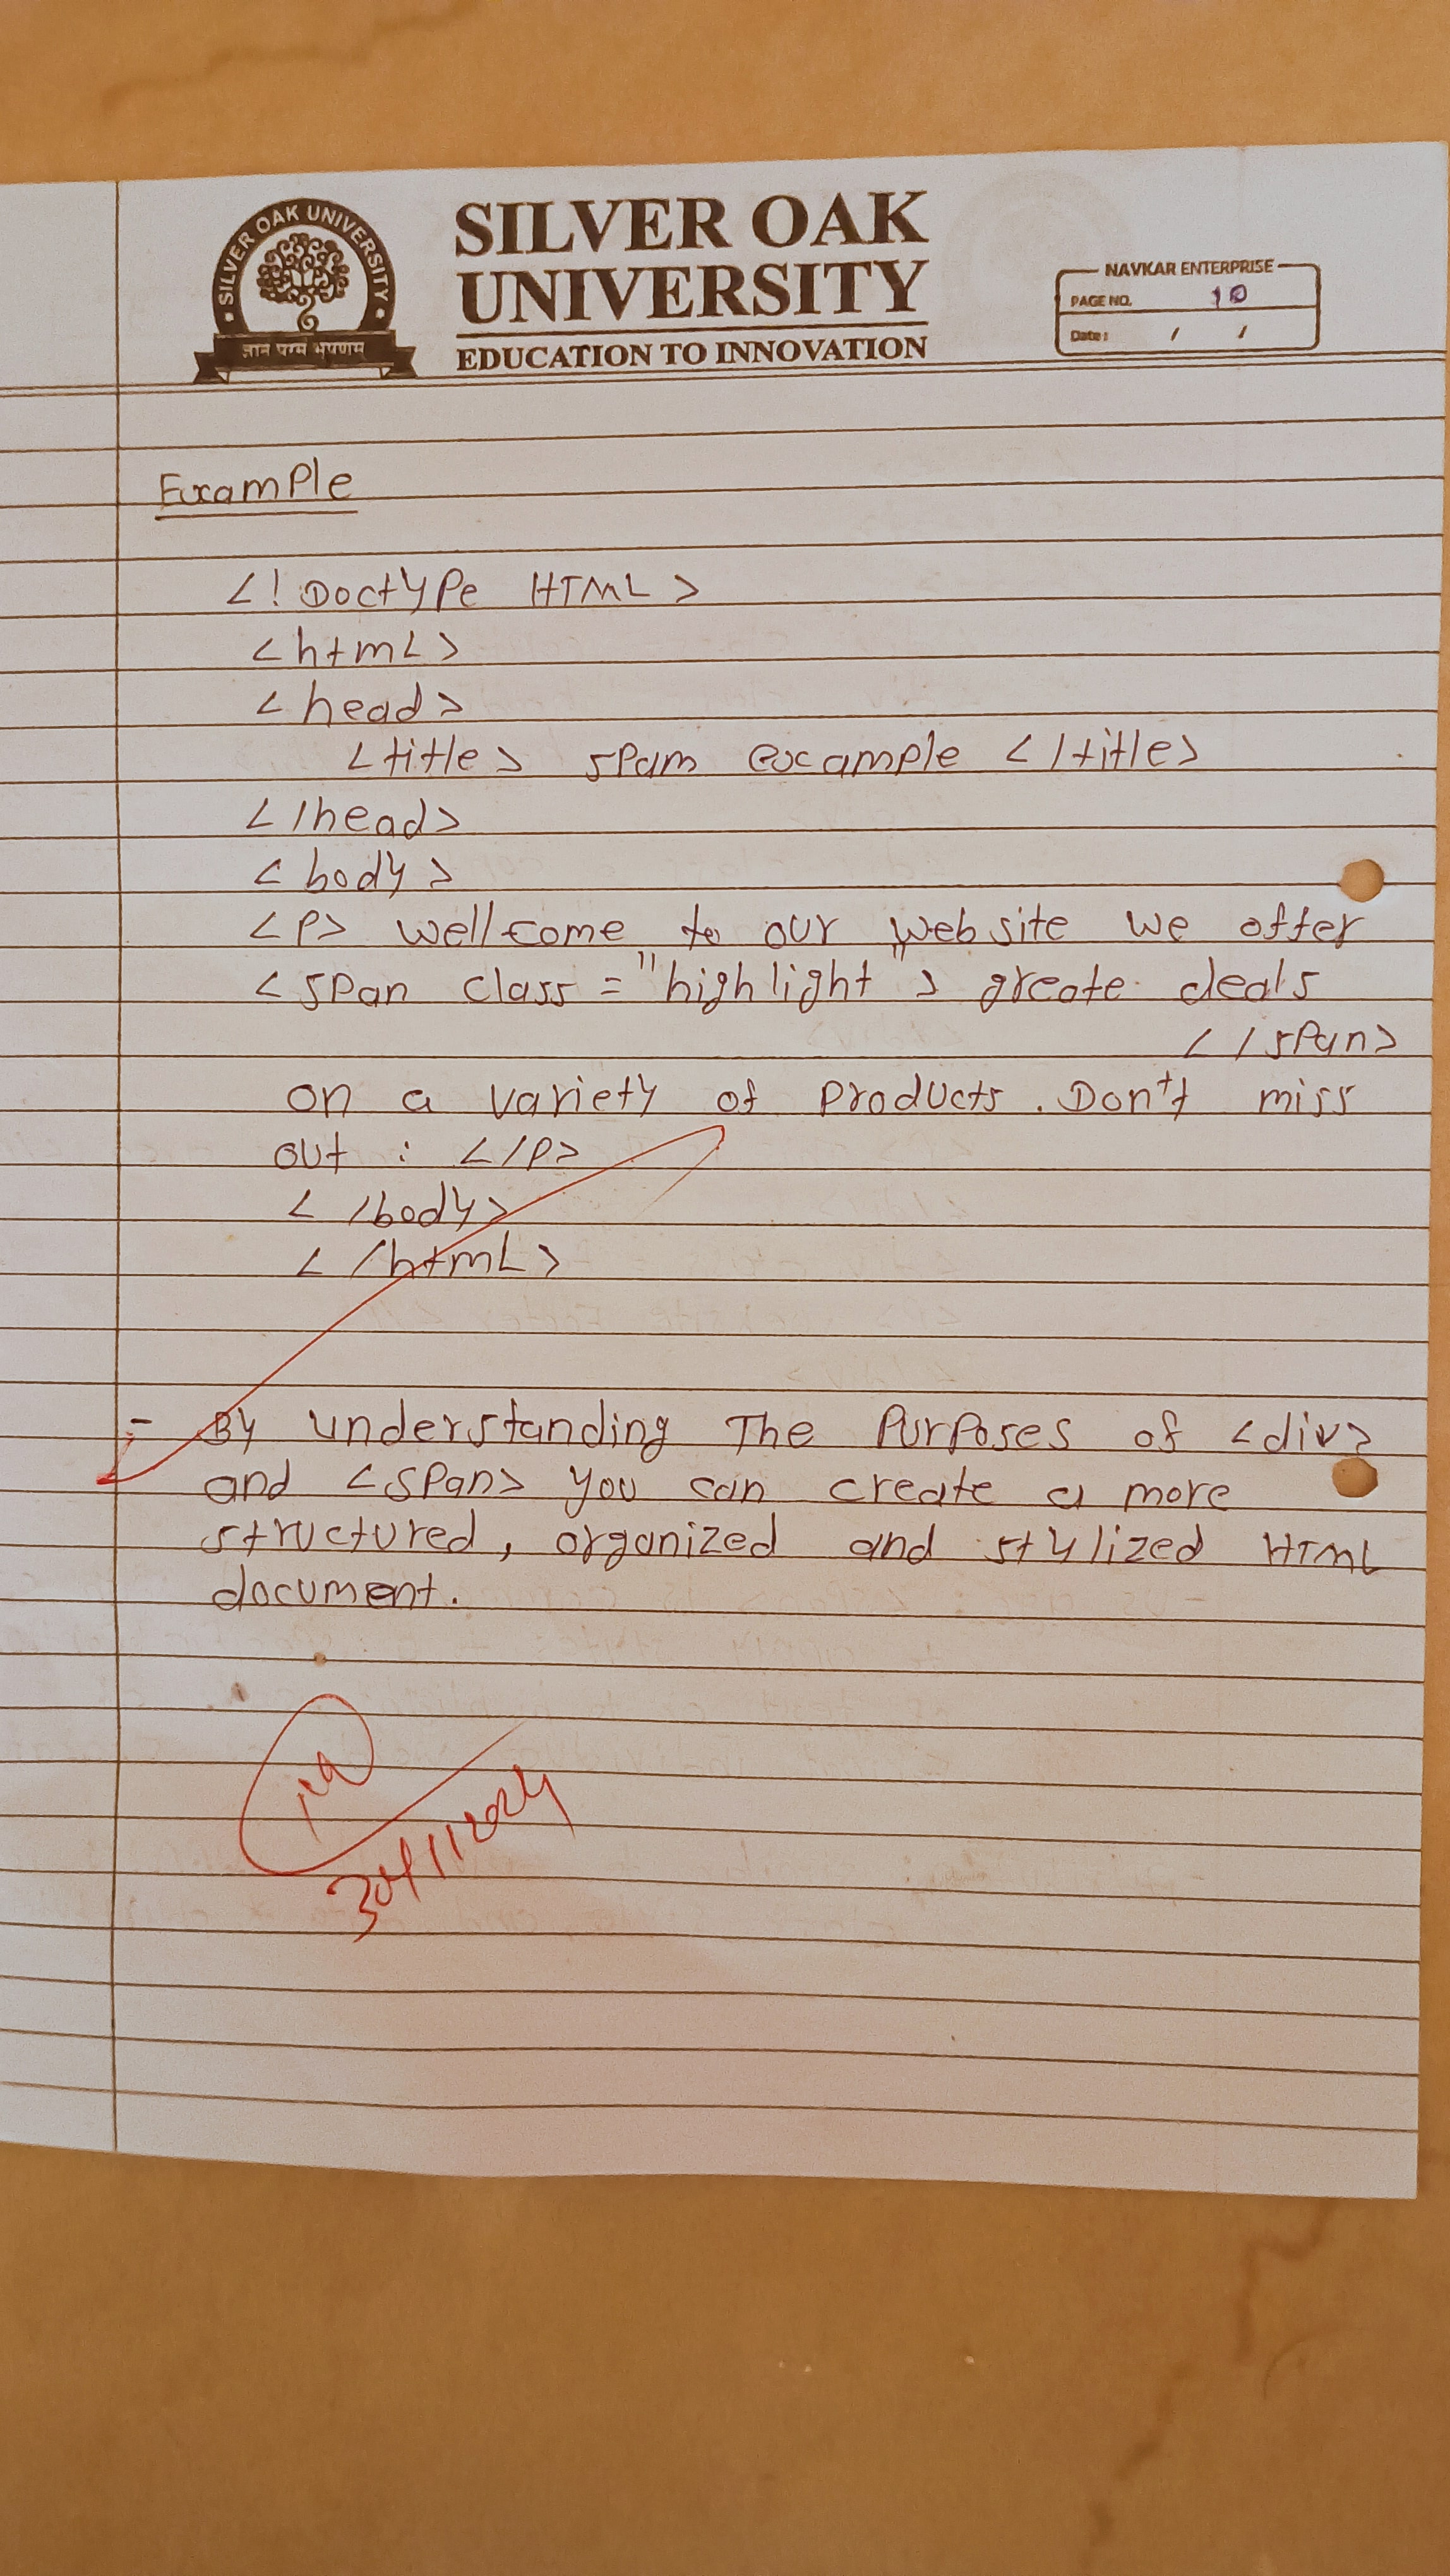 SILVER OAK UNIVERSITY
ज्ञान परम भूषणम
SILVER OAK
UNIVERSITY
EDUCATION TO INNOVATION
NAVKAR ENTERPRISE
PAGE NO. 10
Date: / /
Example
<! Doctype HTML >
<html>
<head>
<title> spam example </title>
</head>
<body>
<p> wellcome to our website we offer
<span class = "highlight"> greate deals
</span>
on a variety of products. Don't miss
out : </p>
</body>
</html>
- By understanding The Purposes of <div>
and <span> you can create a more
structured, organized and stylized HTML
document.
30/11/2024